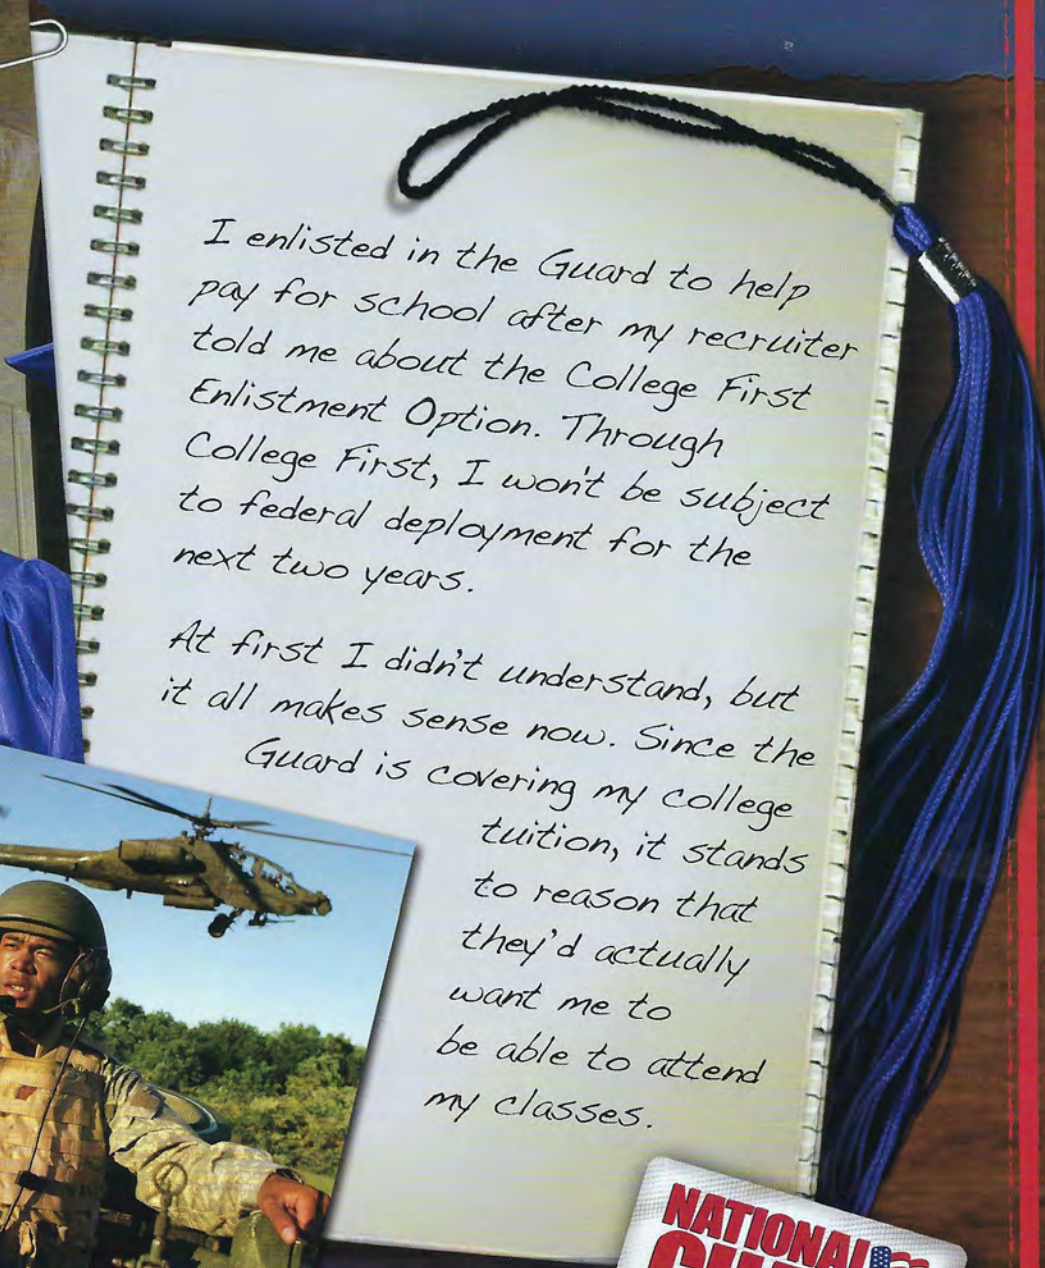 I enlisted in the Guard to help
pay for school after my recruiter
told me about the College First
Enlistment Option. Through
College First, I won't be subject
to federal deployment for the
next two years.
At first I didn't understand, but
it all makes sense now. Since the
Guard is covering my college
tuition, it stands
to reason that
they'd actually
want me to
be able to attend
my classes.
NATIONAL